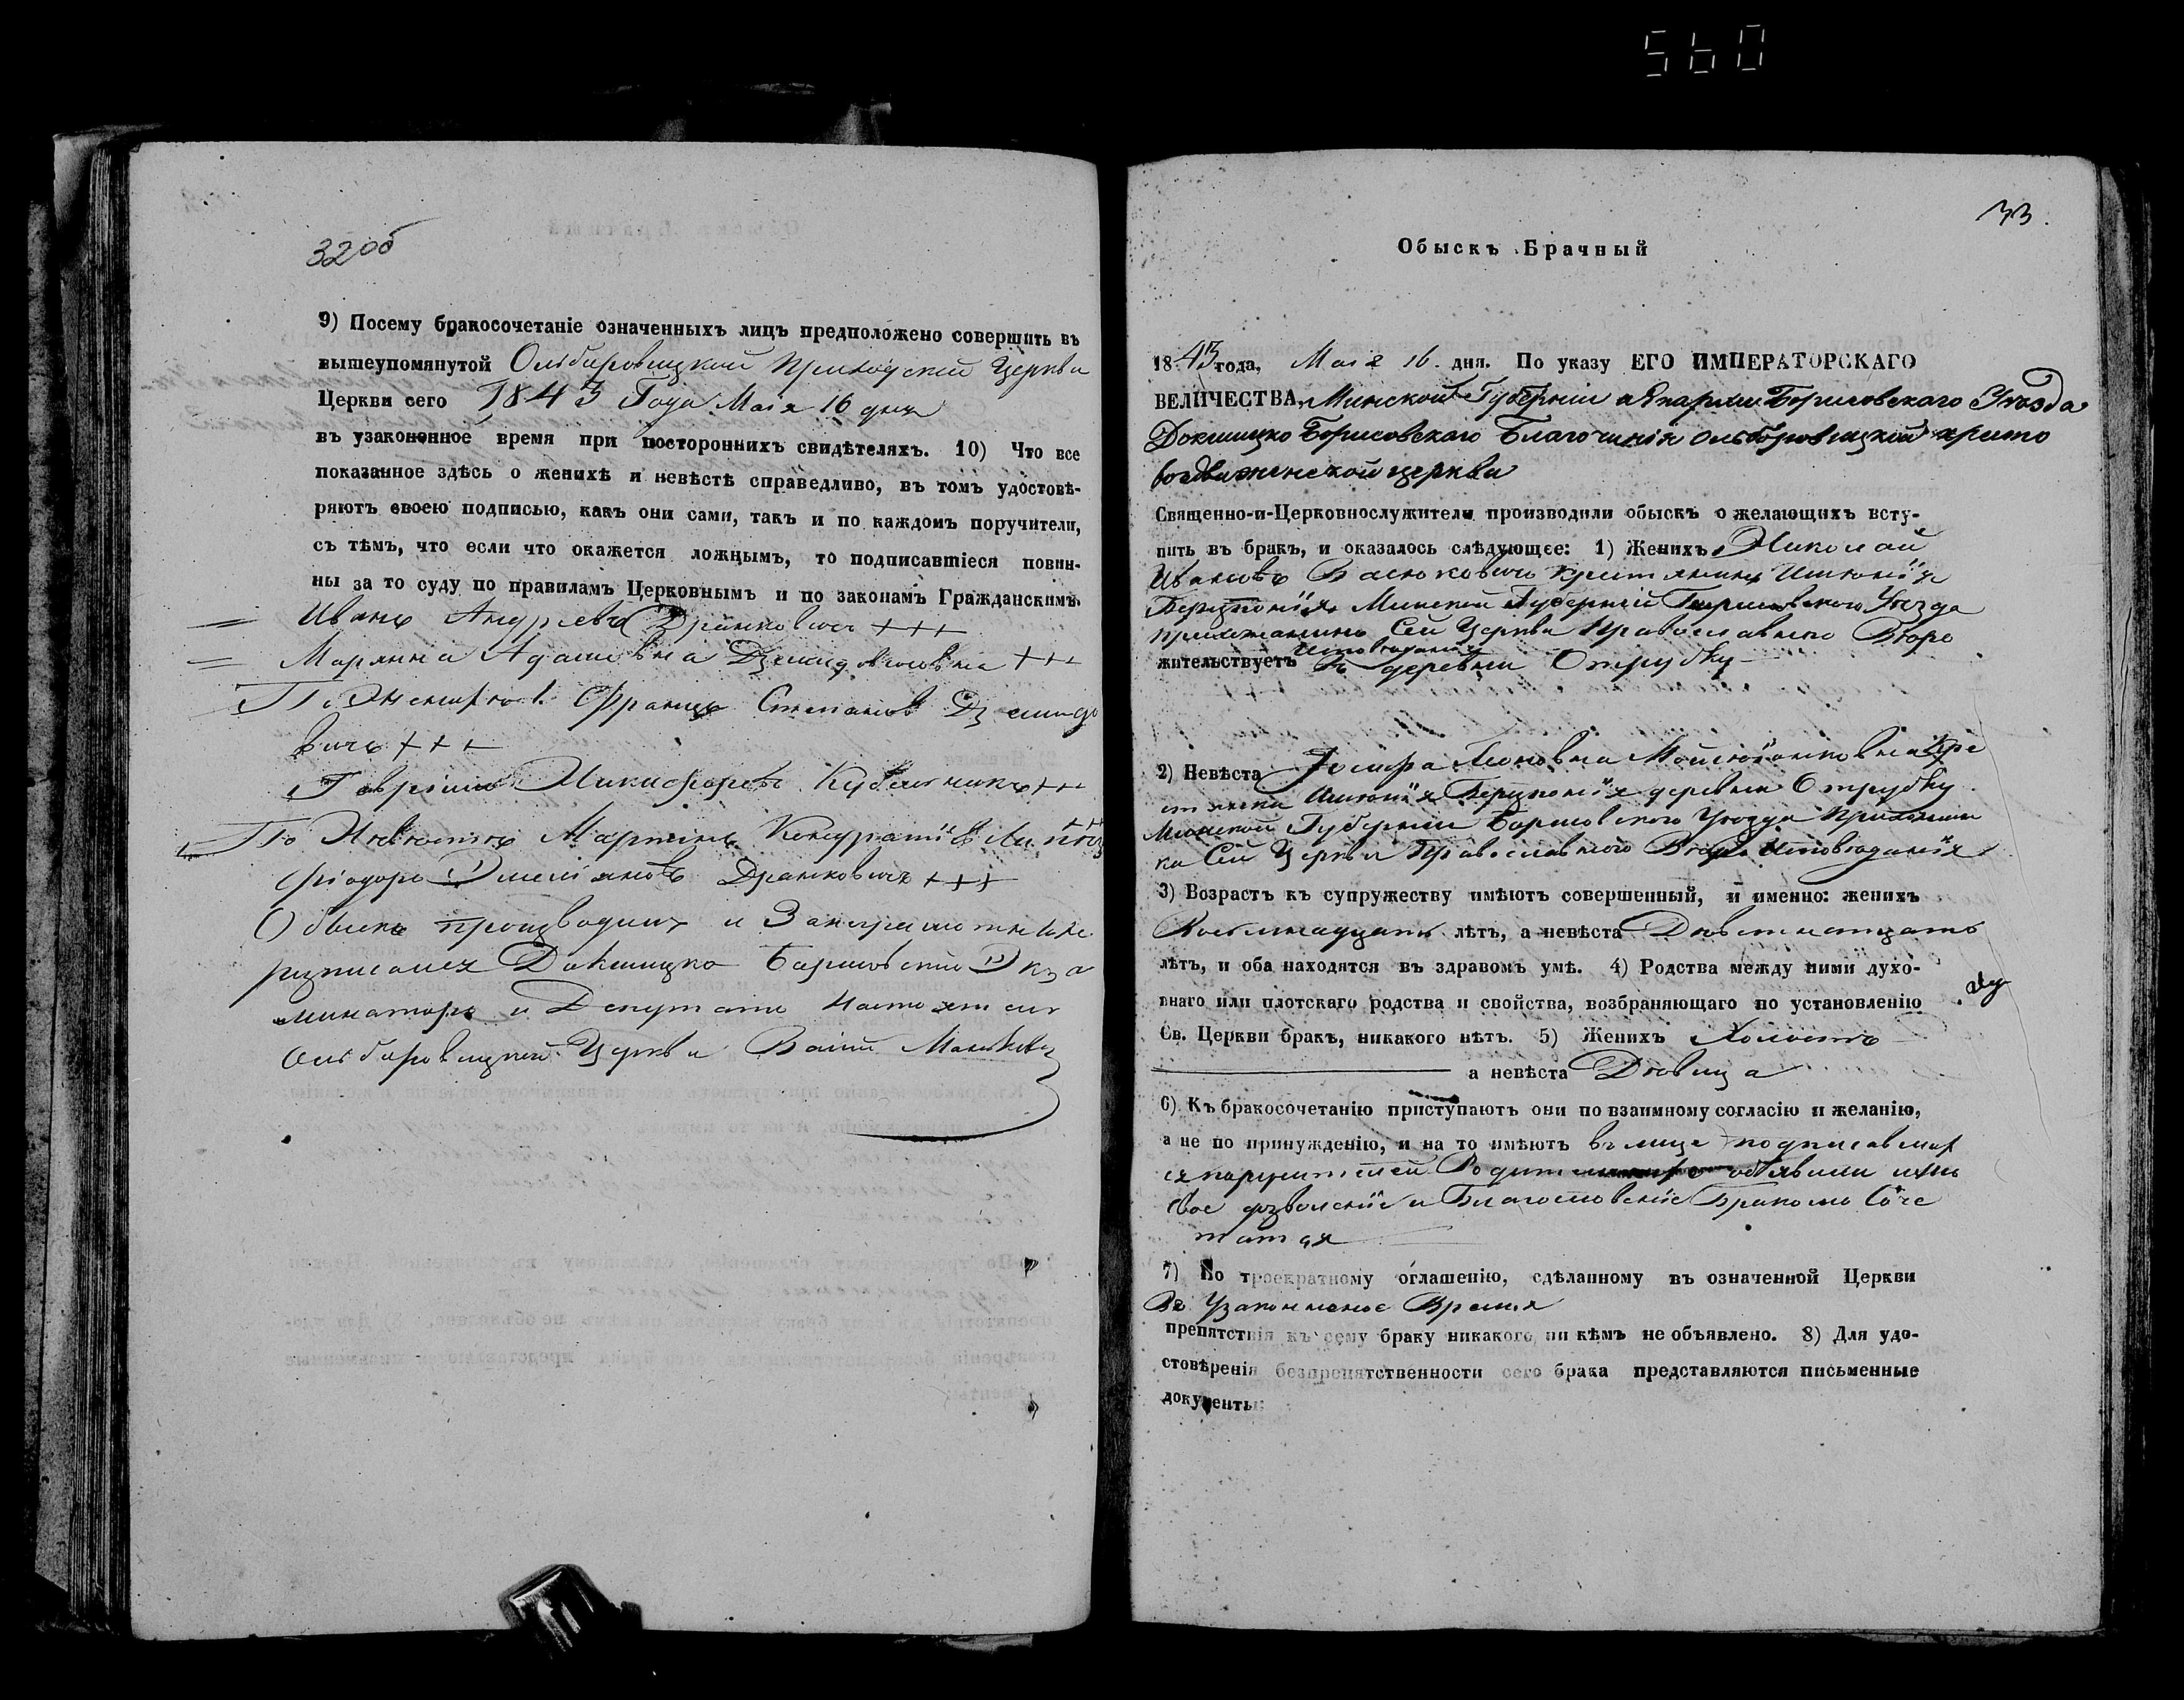 560
32об
9) Посему бракосочетаніе означенныхъ лицъ предположено совершить въ
вышеупомянутой Ольбаровицкой Приходской Церкви
Церкви сего 1843 Года Маія 16 дня
въ узаконенное время при постороннихъ свидѣтеляхъ. 10) Что все
показанное здѣсь о женихѣ и невѣстѣ справедливо, въ томъ удостовѣ-
ряютъ своею подписью, какъ они сами, такъ и по каждомъ поручители,
съ тѣмъ, что если что окажется ложнымъ, то подписавшіеся повин-
ны за то суду по правиламъ Церковнымъ и по законамъ Гражданскимъ.
Иванъ Андреевъ Дранковичъ +++
Марянна Адамовна +++
По Францъ Степановъ
вичъ +++
Никифоровъ +++
По Невѣстѣ Мартинъ
Дранковичъ +++
Обыскъ производилъ и
Докшицко Борисовскій Экза
минаторъ и Депутатъ Настоятель
Ольбаровицкой Церкви
33.
Обыскъ Брачный
1843 года, Маія 16. дня. По указу ЕГО ИМПЕРАТОРСКАГО
ВЕЛИЧЕСТВА, Минской Губерніи и Епархіи Борисовскаго Уѣзда
Докшицко Борисовскаго Благочинія Ольборовицкой кресто
воздвиженской церкви
Священно-и-Церковнослужители производили обыскъ о желающихъ всту-
пить въ бракъ, и оказалось слѣдующее: 1) Женихъ Николай
Ивановъ Васюковичъ крестянинъ Имѣнія
Минской Губерніи Борисовского Уѣзда
прихожанинъ Сей Церкви Православного Вѣро
исповѣданія
жительствуетъ въ деревни Отрубку
2) Невѣста Леоновна Кре
стянка Имѣнія деревни Отрубку
Минской Губерніи Борисовского Уѣзда Прихожан
ка Сей Церкви Православного Вѣро Исповѣданія
3) Возрастъ къ супружеству имѣютъ совершенный, и именно: женихъ
лѣтъ, а невѣста
лѣтъ, и оба находятся въ здравомъ умѣ. 4) Родства между ними духо-
внаго или плотскаго родства и свойства, возбраняющаго по установленію
Св. Церкви бракъ, никакого нѣтъ. 5) Женихъ Холостъ
а невѣста Дѣвица
6) Къ бракосочетанію приступаютъ они по взаимному согласію и желанію,
а не по принужденію, и на то имѣютъ въ лице подписавших
ся поручителей объявили имъ
свое дозволеніе и Благословеніе Бракомъ Соче
татся
7) По троекратному оглашенію, сдѣланному въ означенной Церкви
Въ Узаконненое Время
препятствія къ сему браку никакого ни кѣмъ не объявлено. 8) Для удо-
стовѣренія безпрепятственности сего брака представляются письменные
документы: